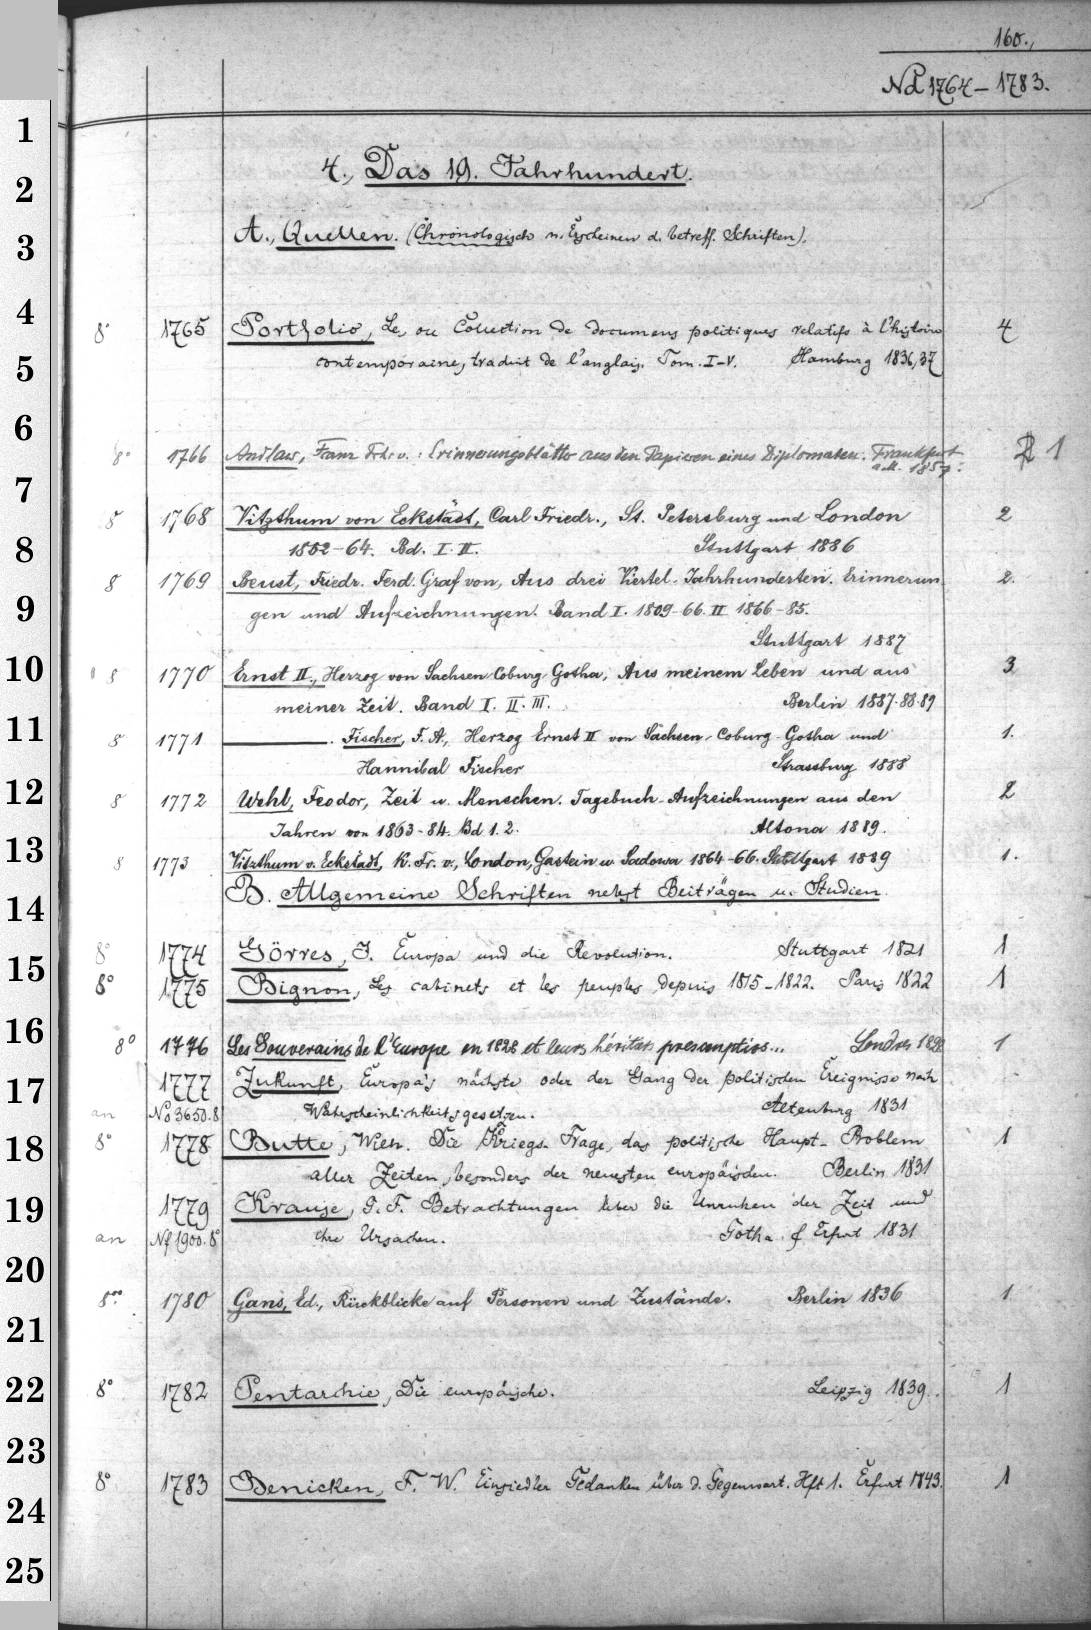 160.,
Nd 1764 – 1783.
4., Das 19. Jahrhundert.
A., Quellen. (Chronologisch n. Erscheinen d. betreff. Schriften).
8° 1765 Portfolio, Le, ou Collection de documens politiques relatifs à l'histoire 4
contemporaine, traduit de l'anglais. Tom. I–V. Hamburg 1836,37
8° 1766 Andlaw, Franz Frhr v.: Erinnerungsblätter aus den Papieren eines Diplomaten. Frankfurt 1
a.M. 1857.
8 1768 Vitzthum von Eckstädt, Carl Friedr., St. Petersburg und London 2
1852–64. Bd. I. II. Stuttgart 1886
8 1769 Beust, Friedr. Ferd. Graf von, Aus drei Viertel-Jahrhunderten. Erinnerun 2.
gen und Aufzeichnungen. Band I. 1809–66. II 1866–85.
Stuttgart 1887
8 1770 Ernst II., Herzog von Sachsen Coburg Gotha, Aus meinem Leben und aus 3
meiner Zeit. Band I. II. III. Berlin 1887.88.89
8 1771 ———. Fischer, F. A., Herzog Ernst II von Sachsen-Coburg-Gotha und 1.
Hannibal Fischer Strassburg 1888
8 1772 Wehl, Feodor, Zeit u. Menschen. Tagebuch-Aufzeichnungen aus den 2
Jahren von 1863–84. Bd 1. 2. Altona 1889.
8 1773 Vitzthum v. Eckstädt, K. Fr. v., London, Gastein u. Sadowa 1864–66. Stuttgart 1889 1.
B. Allgemeine Schriften nebst Beiträgen u. Studien.
8° 1774 Görres, J. Europa und die Revolution. Stuttgart 1821 1
8° 1775 Bignon, Les cabinets et les peuples depuis 1815–1822. Paris 1822 1
8° 1776 Les Souverains de l'Europe en 1828 et leurs héritiers presomptifs... Londres 1
1777 Zukunft, Europa's nächste oder der Gang der politischen Ereignisse nach
an No 3650.8 Wahrscheinlichkeitsgesetzen. Altenburg 1831
8° 1778 Butte, Wilh. Die Kriegs-Frage, das politische Haupt-Problem 1
aller Zeiten, besonders der neuesten europäischen. Berlin 1831
1779 Krause, G. F. Betrachtungen über die Unruhen der Zeit und
an Nf 1900.8° ihre Ursachen. Gotha & Erfurt 1831
8° 1780 Gans, Ed., Rückblicke auf Personen und Zustände. Berlin 1836 1
8° 1782 Pentarchie, Die europäische. Leipzig 1839. 1
8° 1783 Benicken, F. W. Einsiedler Gedanken über d. Gegenwart. Hft 1. Erfurt 1843. 1
1
2
3
4
5
6
7
8
9
10
11
12
13
14
15
16
17
18
19
20
21
22
23
24
25